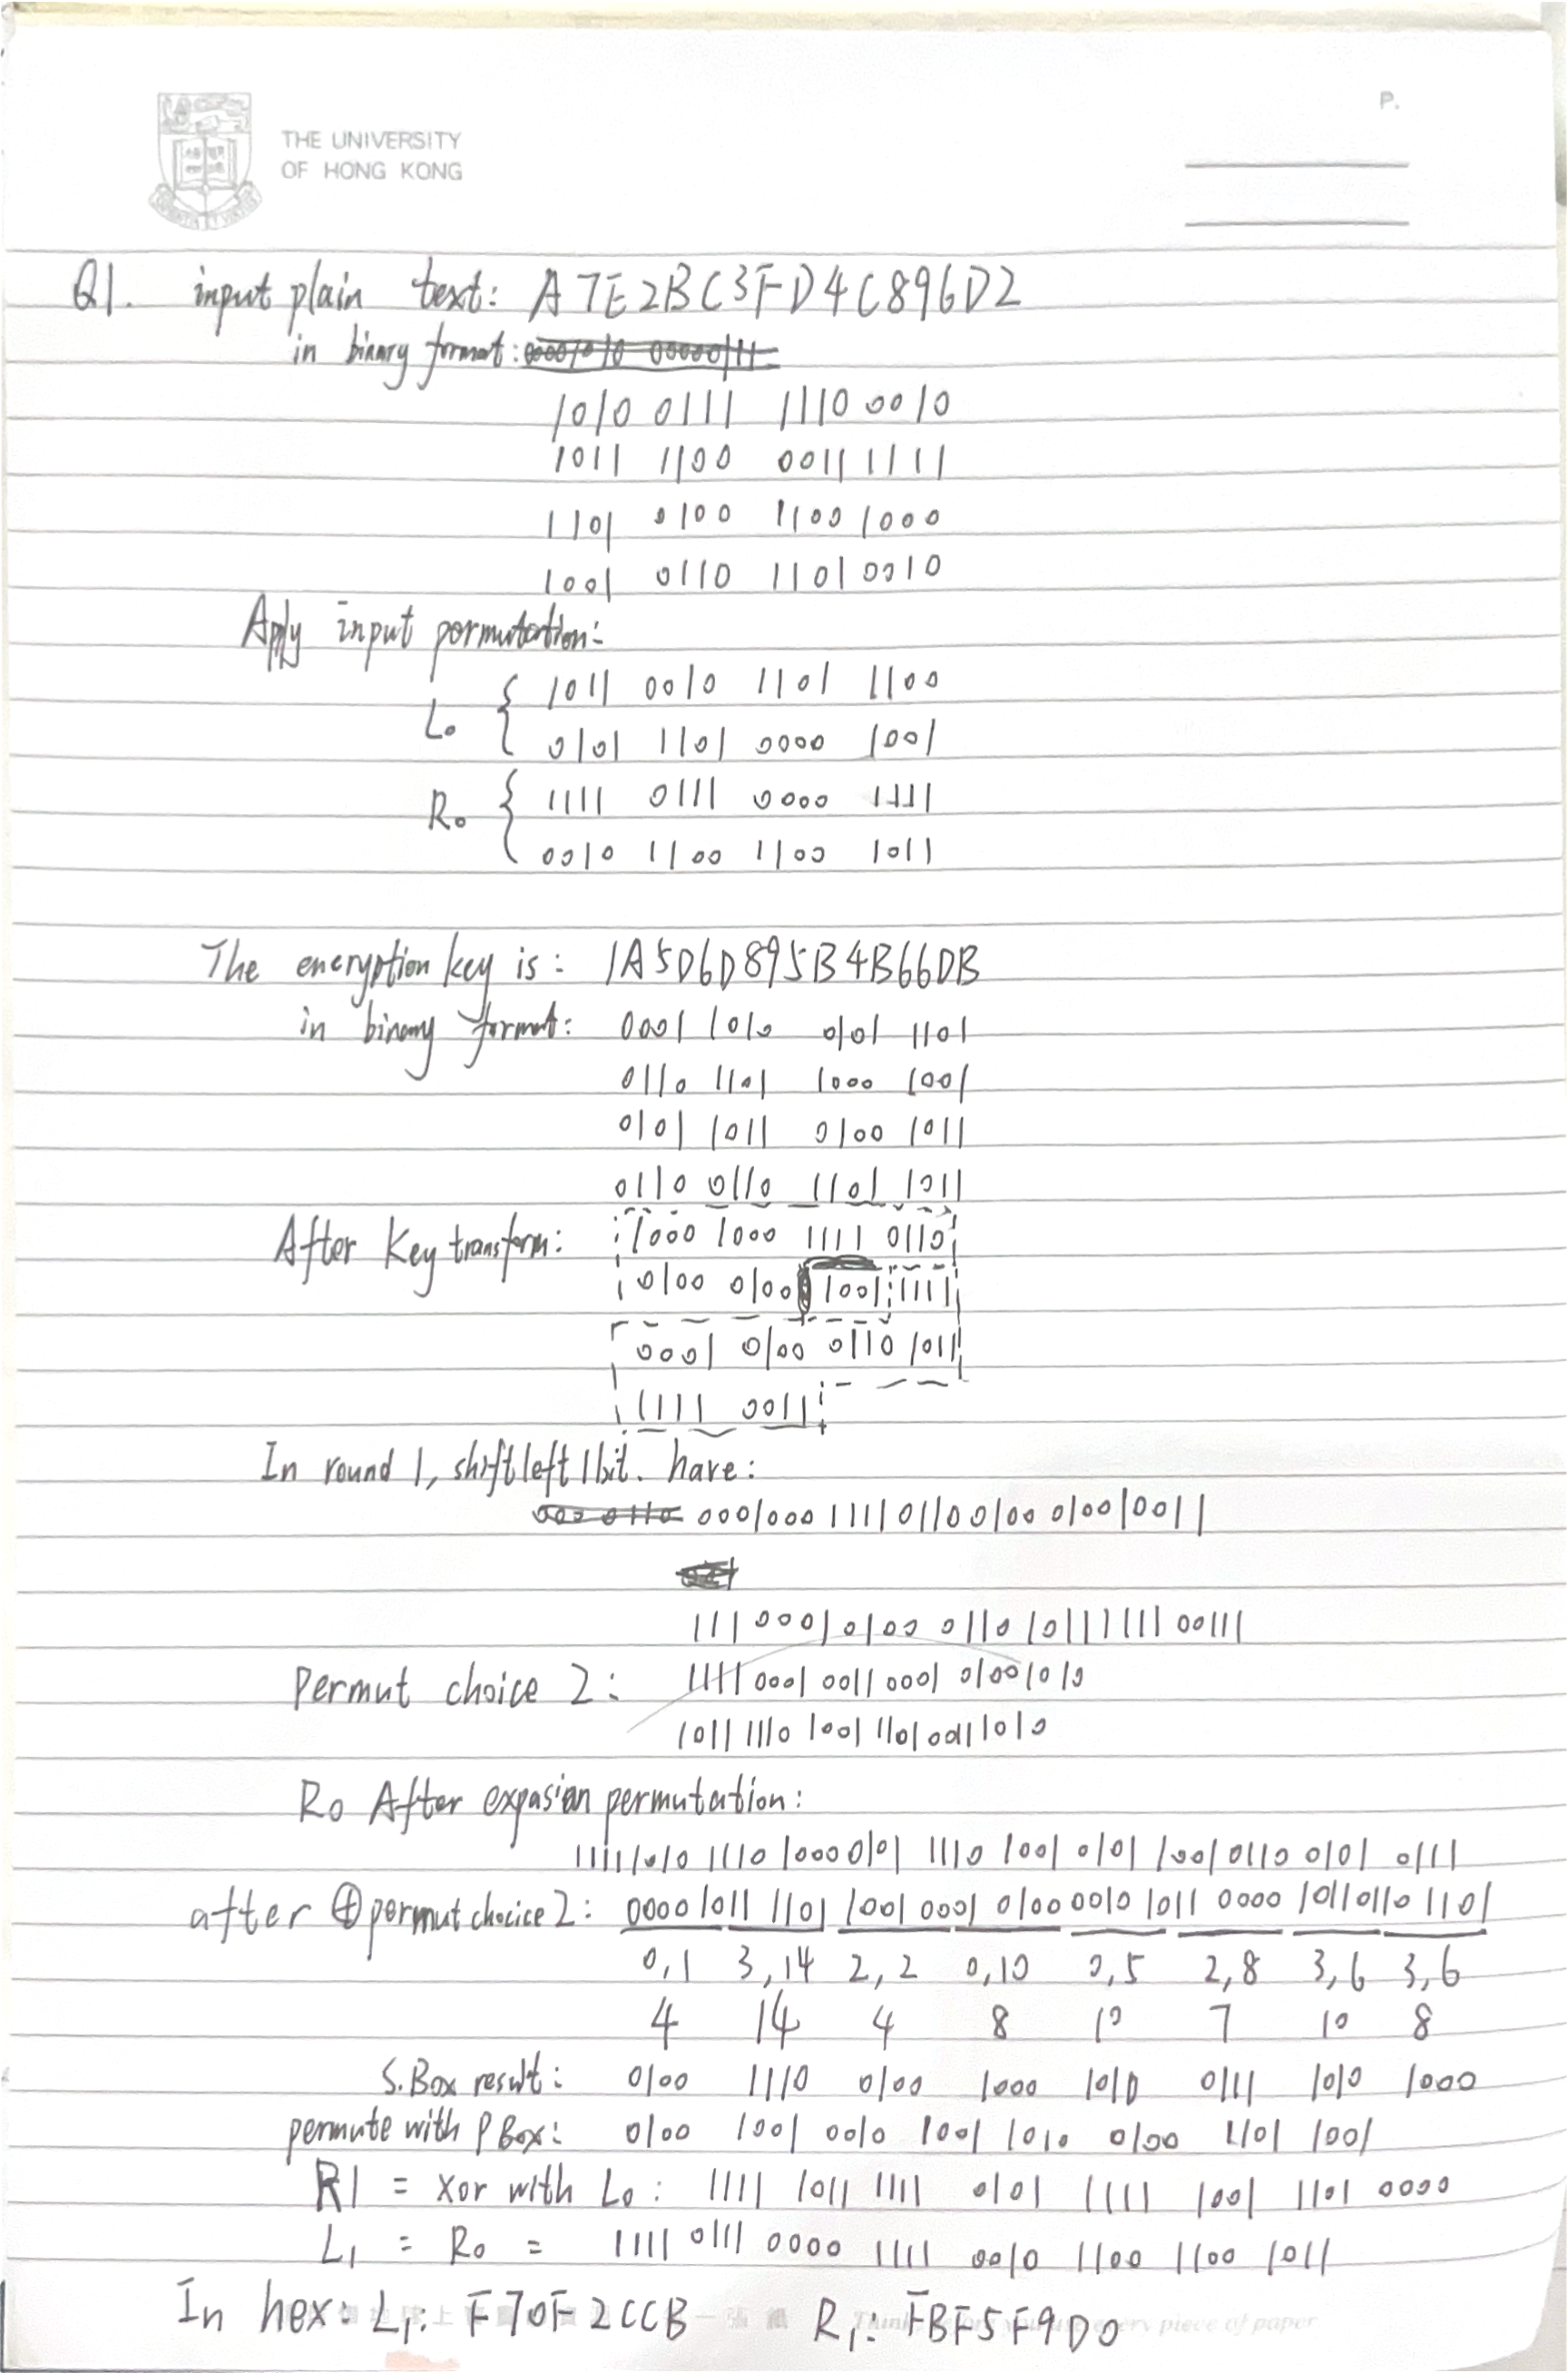 P.
THE UNIVERSITY
OF HONG KONG
Q1. input plain text: A7E2BC3FD4C896D2
in binary format:
1010 0111 1110 0010
1011 1100 0011 1111
1101 0100 1100 1000
1001 0110 1101 0010
Apply input permutation:
L0 { 1011 0010 1101 1100
0101 1101 0000 1001
R0 { 1111 0111 0000 1111
0010 1100 1100 1011
The encryption key is: 1A5D6D895B4B66DB
in binary format: 0001 1010 0101 1101
0110 1101 1000 1001
0101 1011 0100 1011
0110 0110 1101 1011
After Key transform: 1000 1000 1111 0110
0100 0100 1001 1111
0001 0100 0110 1011
1111 0011
In round 1, shift left 1 bit. have:
0001000 1111 01100100 0100 10011
111 0001 0100 0110 1011 1111 00111
Permut choice 2: 1111 0001 0011 0001 0100 1010
1011 1110 1001 1101 0011 1010
R0 After expasian permutation:
1111 1010 1110 1000 0101 1110 1001 0101 1001 0110 0101 0111
after ⊕ permut chocice 2: 0000 1011 1101 1001 0001 0100 0010 1011 0000 1011 0110 1101
0,1 3,14 2,2 0,10 0,5 2,8 3,6 3,6
4 14 4 8 10 7 10 8
S.Box result: 0100 1110 0100 1000 1010 0111 1010 1000
permute with P Box: 0100 1001 0010 1001 1010 0100 1101 1001
R1 = xor with L0: 1111 1011 1111 0101 1111 1001 1101 0000
L1 = R0 = 1111 0111 0000 1111 0010 1100 1100 1011
In hex: L1: F70F2CCB R1: FBF5F9D0